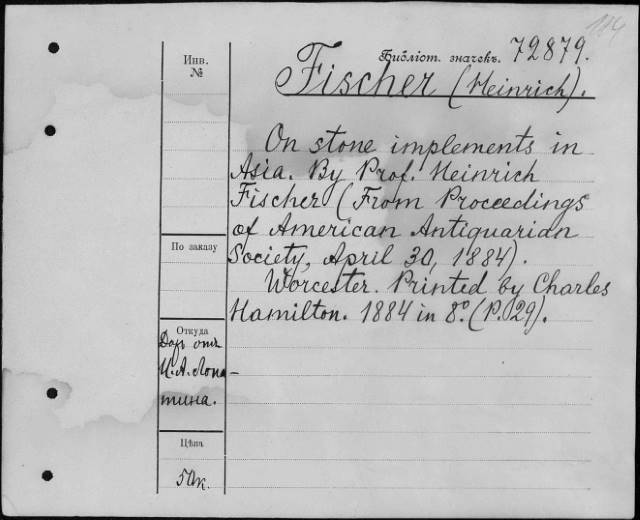 114
Библіот. значекъ. 72879.
Инв.
№
Fischer (Heinrich).
On stone implements in
Asia. By Prof. Heinrich
Fischer (From Proceedings
of American Antiquarian
Society, April 30, 1884).
Worcester. Printed by Charles
Hamilton. 1884 in 8º. (P. 29).
По заказу
Откуда
Даръ отъ
И. А. Лопа-
тина.
Цѣна
50к.